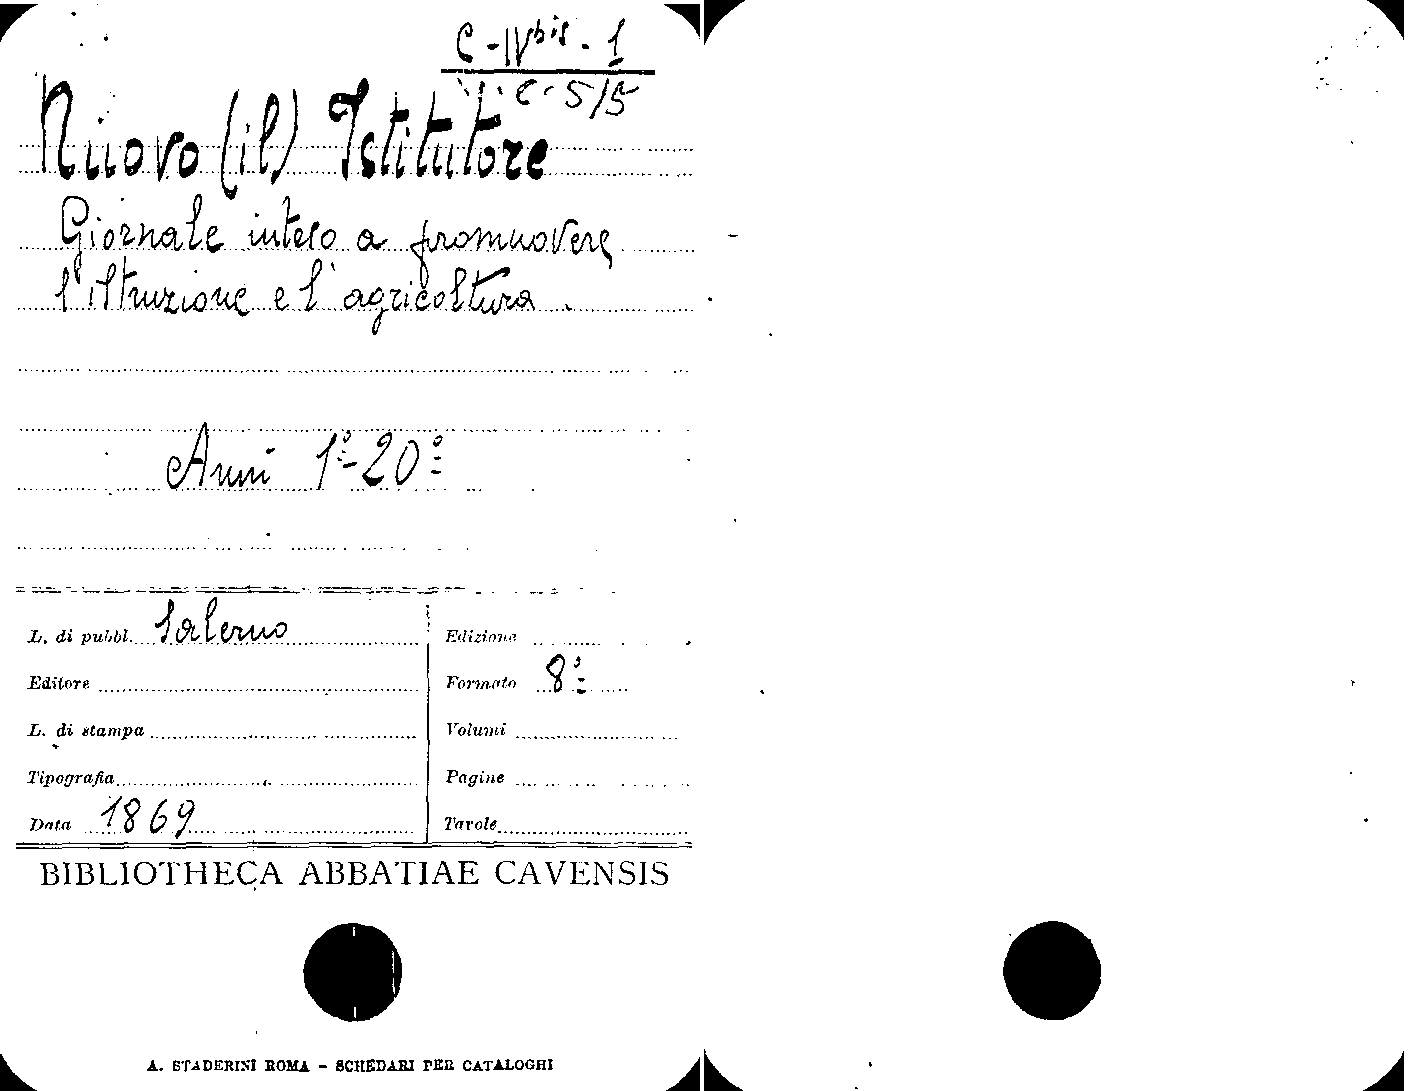 C-IV bis - 1
C. 5/5
Nuovo (il) Istitutore
Giornale inteso a promuovere
l'istruzione e l'agricoltura.
Anni 1º-20º
L. di pubbl. Salerno
Edizione
Editore
Formato 8º
L. di stampa
Volumi
Tipografia
Pagine
Data 1869
Tavole
BIBLIOTHECA ABBATIAE CAVENSIS
A. STADERINI ROMA - SCHEDARI PER CATALOGHI